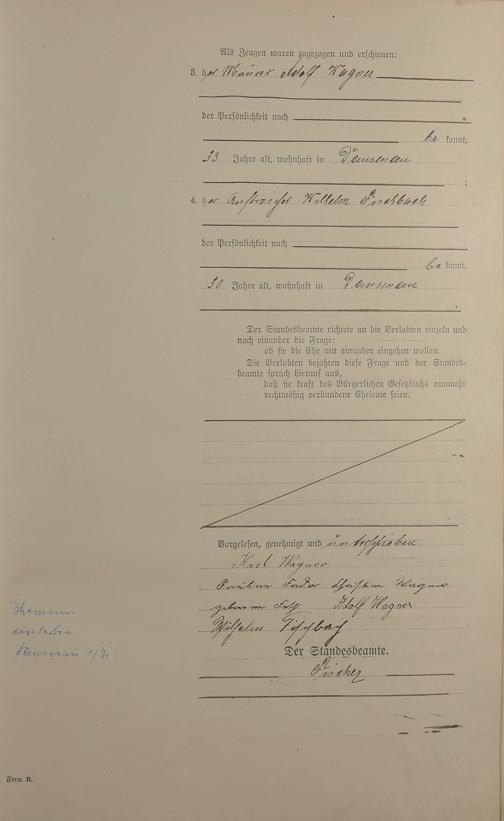 Als Zeugen waren zugezogen und erschienen:
3. der Maurer Adolf Wagner
der Persönlichkeit nach
be kannt,
33 Jahre alt, wohnhaft in Dausenau
4. der Anstreicher Wilhelm Fischbach
der Persönlichkeit nach
be kannt,
30 Jahre alt, wohnhaft in Dausenau
Der Standesbeamte richtete an die Verlobten einzeln und
nach einander die Frage:
ob sie die Ehe mit einander eingehen wollen.
Die Verlobten bejahten diese Frage und der Standes-
beamte sprach hierauf aus,
daß sie kraft des Bürgerlichen Gesetzbuchs nunmehr
rechtmäßig verbundene Eheleute seien.
Vorgelesen, genehmigt und unterschrieben.
Karl Wagner
Wagner
Adolf Wagner
Wilhelm Fischbach
Der Standesbeamte.
Fischer
Ehemann
Dausenau
Form. B.